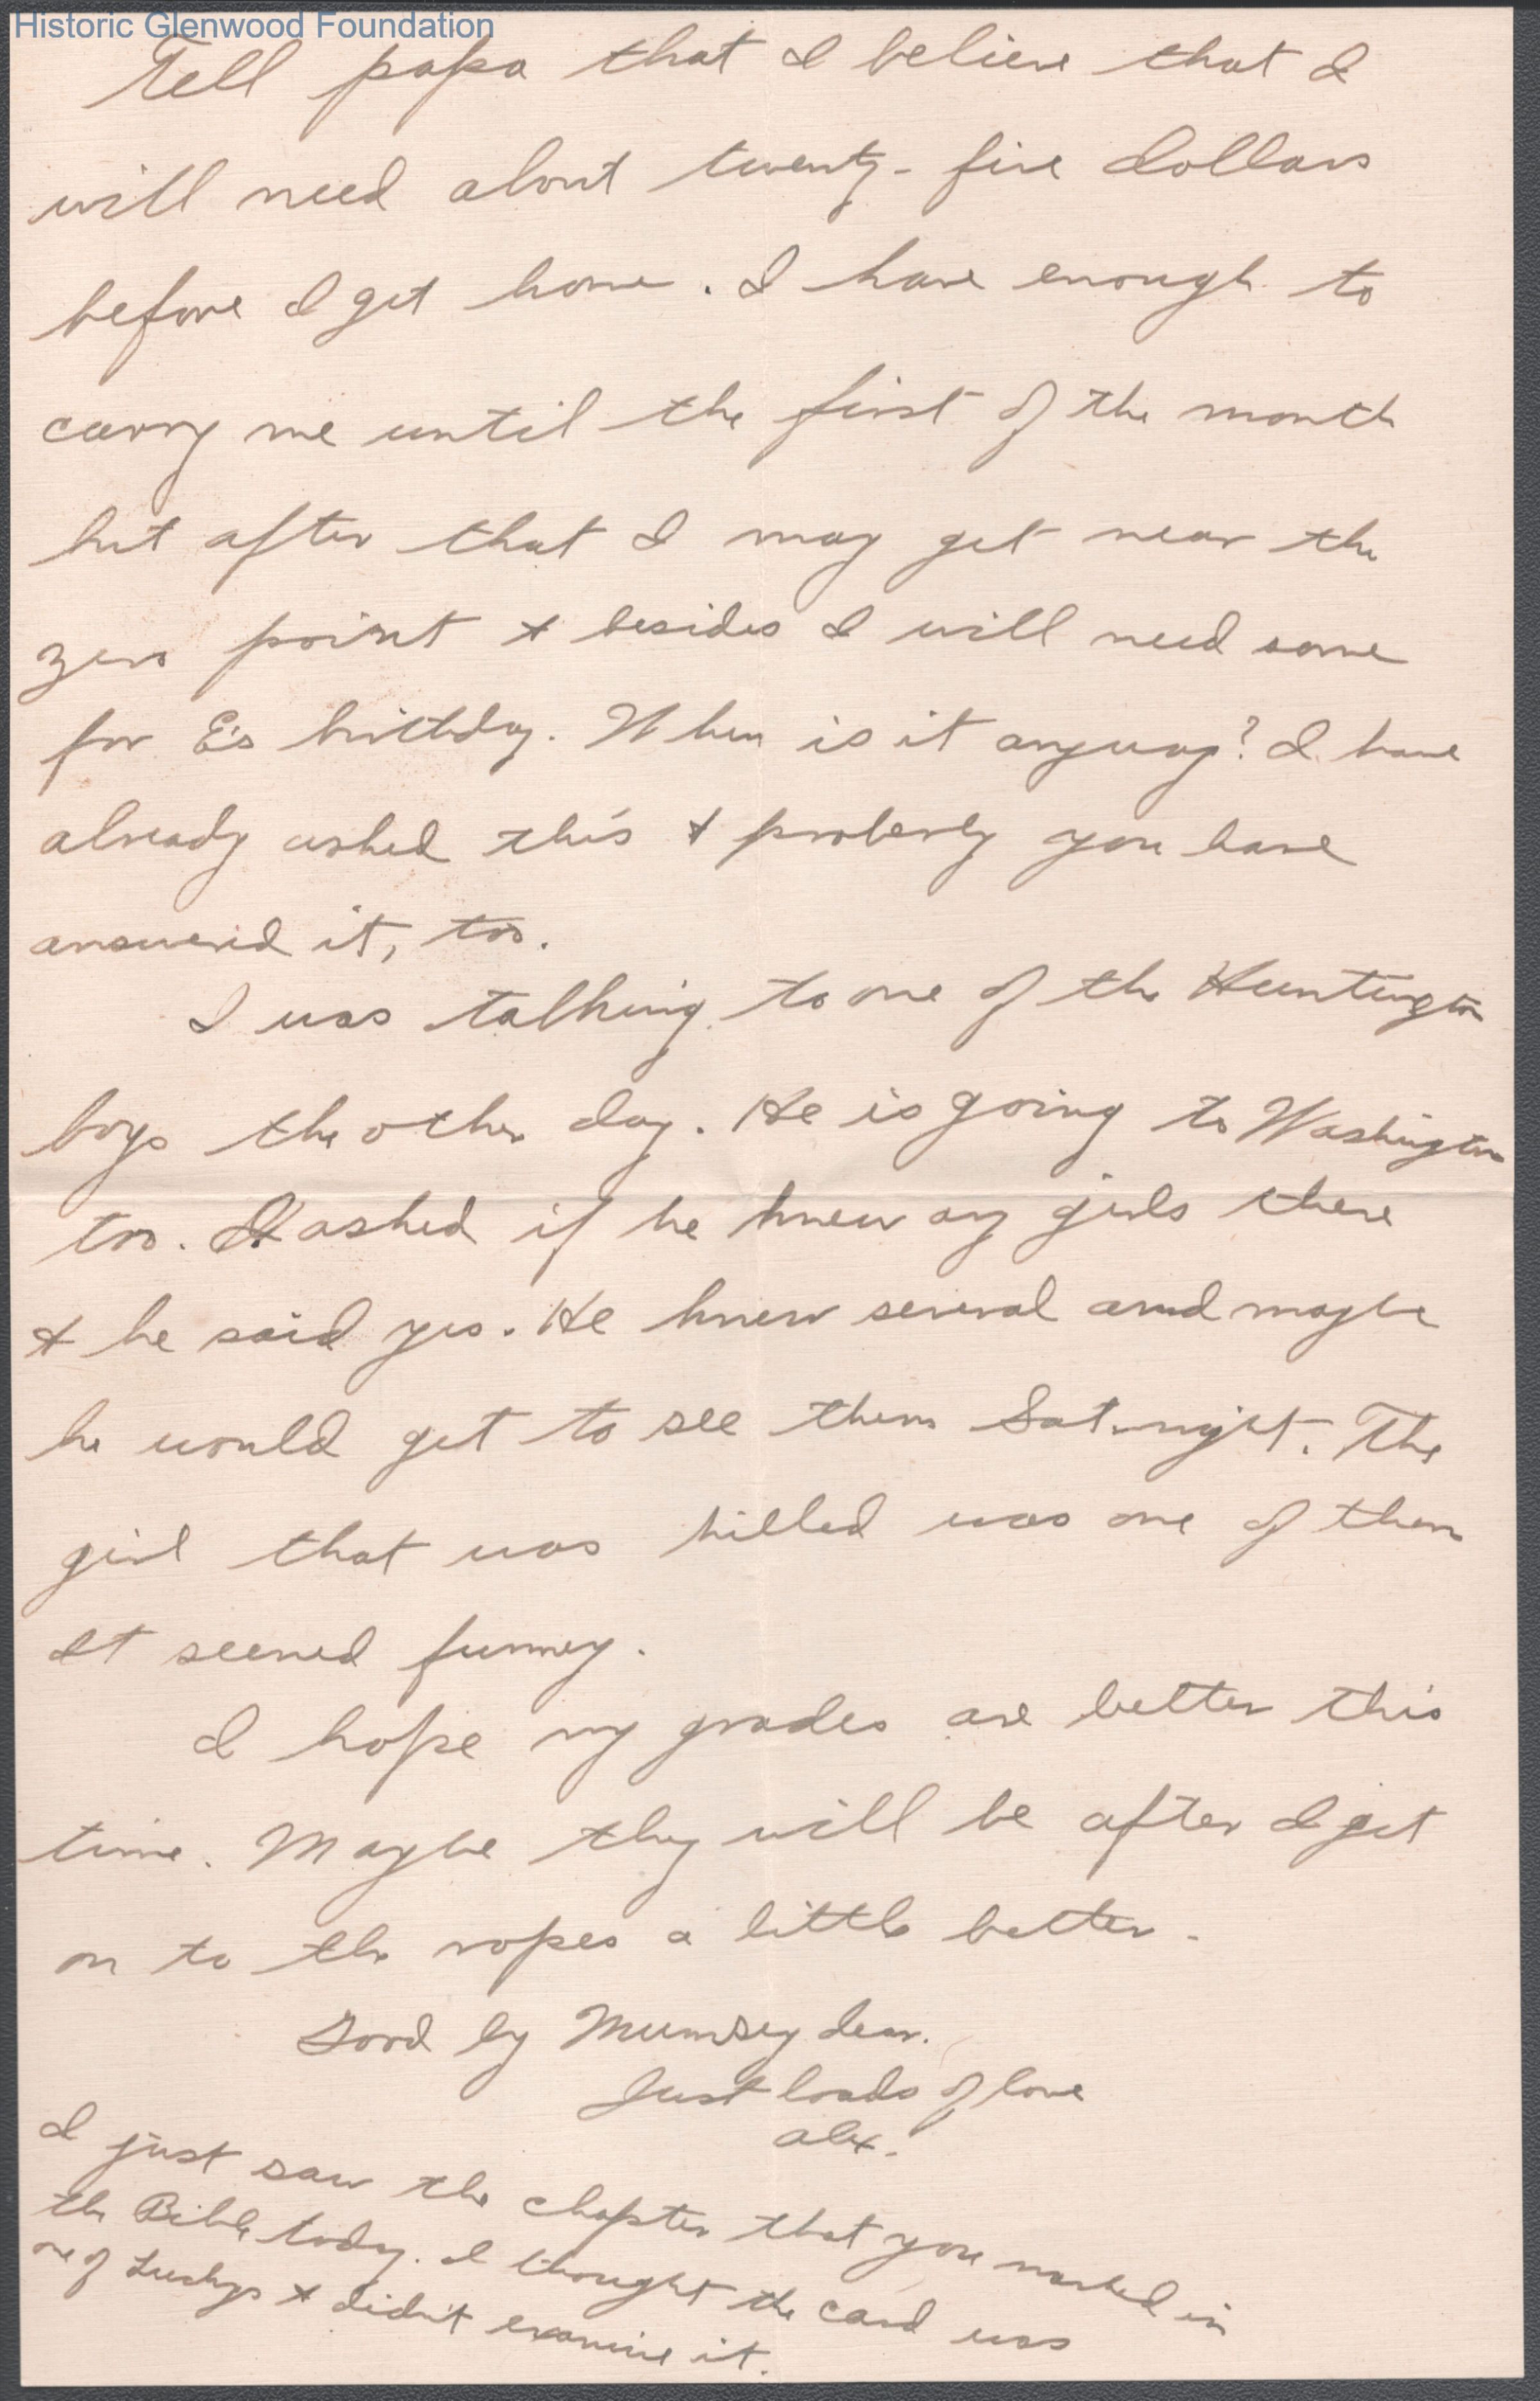 Historic Glenwood Foundation
Tell papa that I believe that I
will need about twenty-five dollars
before I get home. I have enough to
carry me until the first of the month
but after that I may get near the
zero point & besides I will need some
for E's birthday. When is it anyway? I have
already asked this & proberly you have
answered it, too.
I was talking to one of the Huntington
boys the other day. He is going to Washington
too. I asked if he knew any girls there
& he said yes. He knew several and maybe
he would get to see them Sat. night. The
girl that was killed was one of them
It seemed funny.
I hope my grades are better this
time. Maybe they will be after I get
on to the ropes a little better.
Good by Mumsey dear.
Just loads of love
Alex.
I just saw the chapter that you marked in
the Bible today. I thought the card was
one of & didn't examine it.